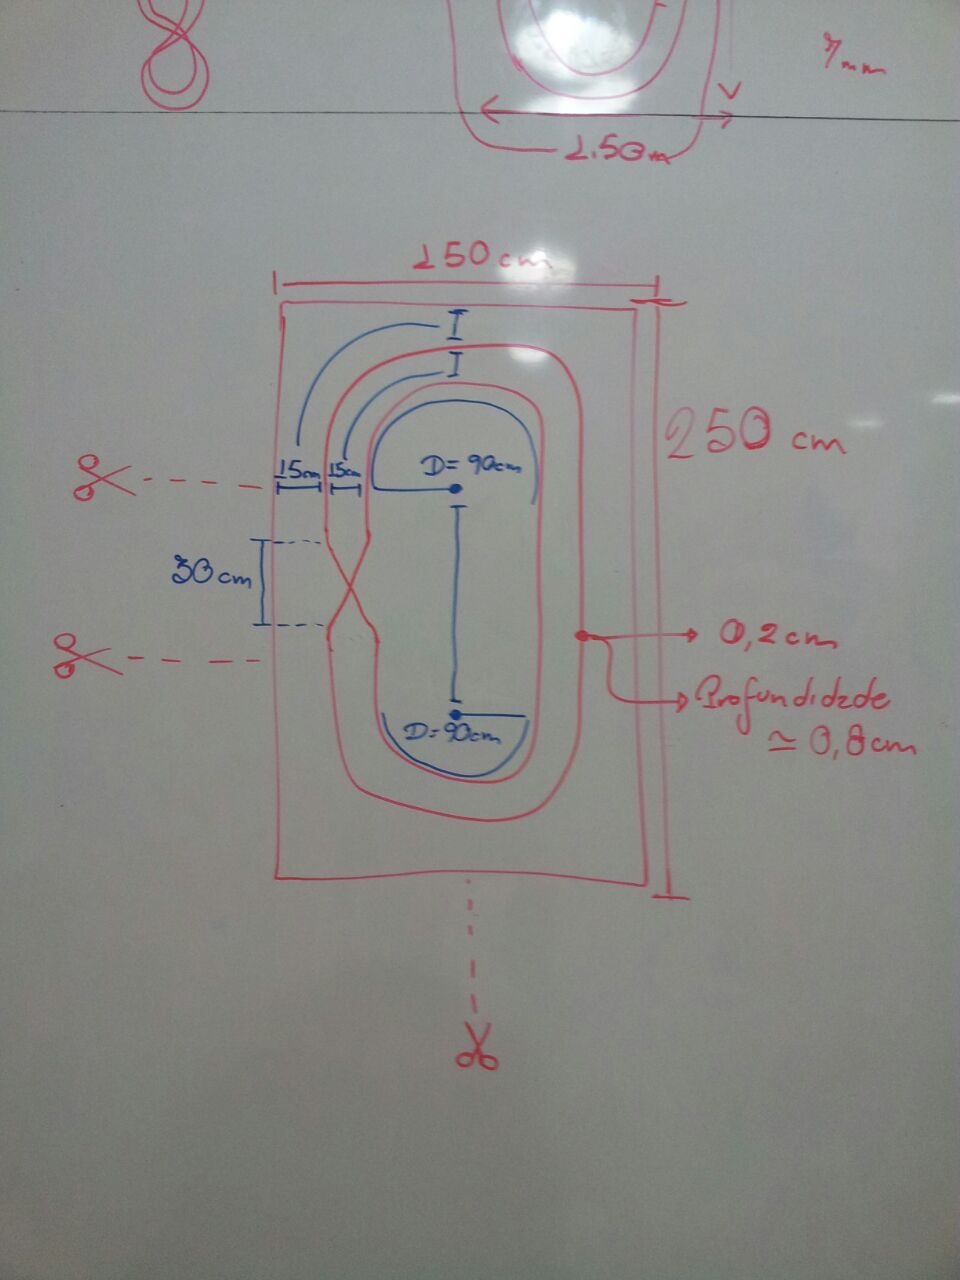 7mm
1.50m
150 cm
250 cm
D= 90cm
15cm 15cm
30cm
0,2 cm
Profundidade
≃ 0,8cm
D=90cm